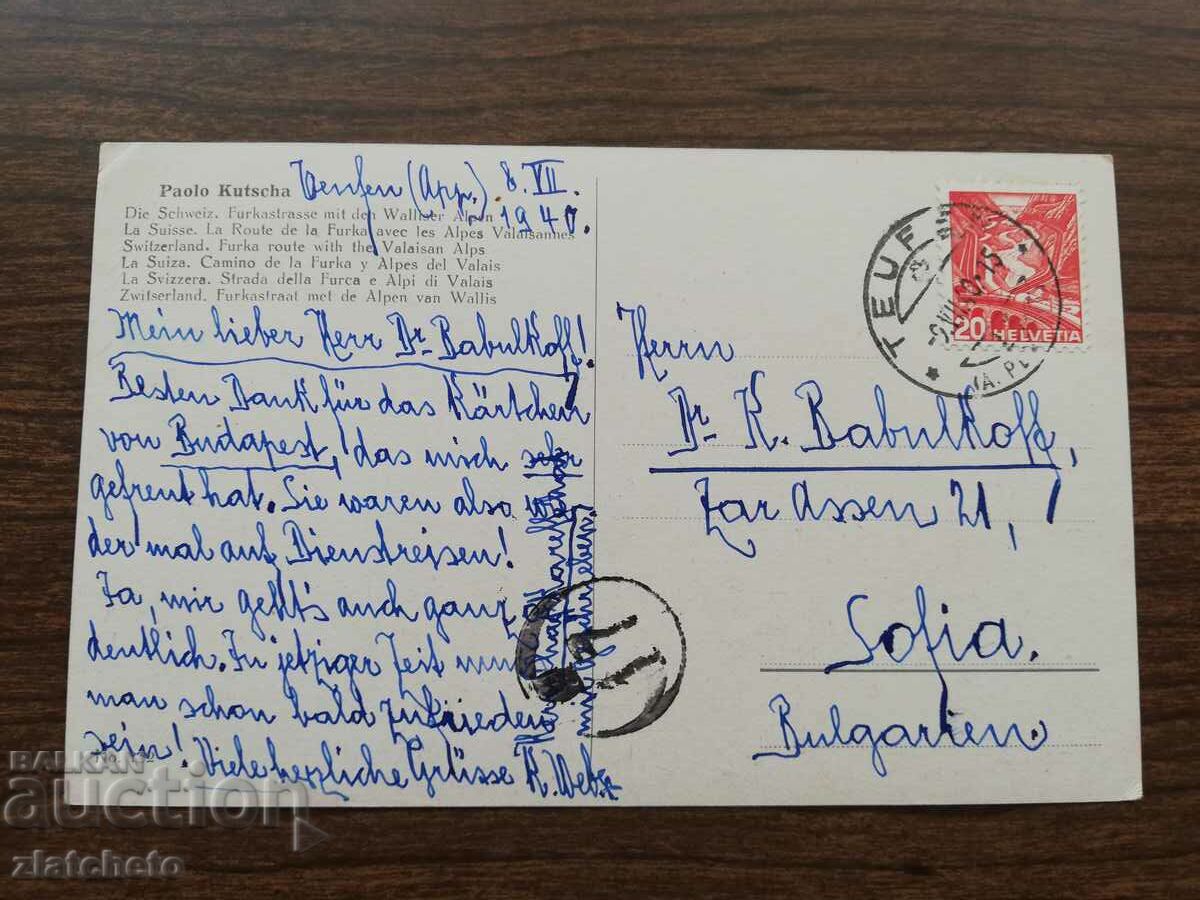 Teufen (App.) 8. VII.
1940.
Paolo Kutscha
Die Schweiz. Furkastrasse mit den Walliser Alpen
La Suisse. La Route de la Furka avec les Alpes Valaisannes
Switzerland. Furka route with the Valaisan Alps
La Suiza. Camino de la Furka y Alpes del Valais
La Svizzera. Strada della Furca e Alpi di Valais
Zwitserland. Furkastraat met de Alpen van Wallis
Mein lieber Herr Dr Babulkoff!
Besten Dank für das Kärtchen
von Budapest, das mich sehr
gefreut hat. Sie waren also wie-
der mal auf Dienstreisen!
Ja, mir geht's auch ganz or-
dentlich. In jetziger Zeit muss
man schon bald zufrieden
sein! Viele herzliche Grüsse K. Weber
mir geschrieben.
TEUFEN
20 HELVETIA
Herrn
Dr K. Babulkoff,
Zar Assen 21,
Sofia.
Bulgarien.
BALKAN
auction
zlatcheto